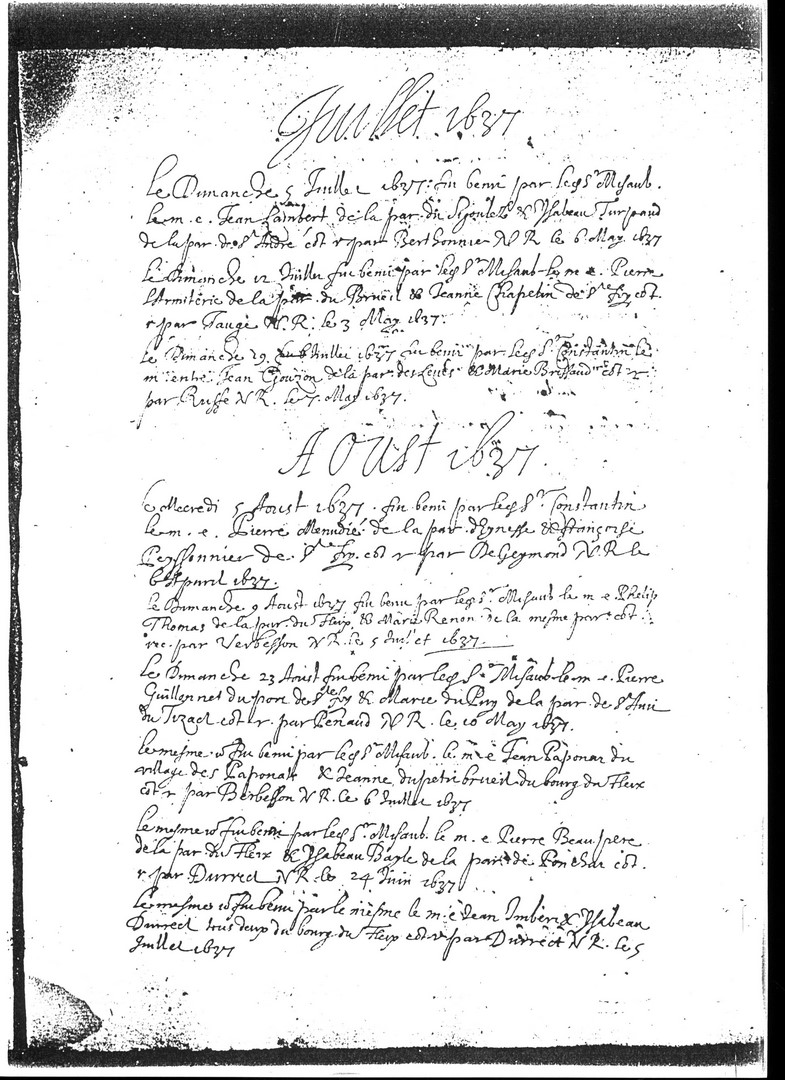 Juillet 1637
Le Dimanche 5 Juillet 1637. fut beni par led Sr Misaub.
le m. e. Jean Lambert de la par. du Sigoulez & Ysabeau Turpaud
de la par. de St André cot r par Berthonnier N R le 6 May 1637
Le Dimanche 12 Juillet fut beni par led Sr Misaub le m e. Pierre
l'Armiterie de la par. du Brueil & Jeanne Chapelin de Ste foy cot.
r par Faugé N. R. le 3 May 1637.
Le Dimanche 29 Juillet 1637 fut beni par led Sr Constantin le
m entre Jean Gouzon de la par des Leves & Marie Briffaud cot r
par Ruffe N R. le 7. May 1637.
AOUST 1637
Le Mecredi 5 Aoust 1637. fut beni par led Sr Constantin
le m. e. Pierre Menudié de la par. d'Eynesse & françoise
Peyssonnier de Ste foy. cot r par DeGeymond N R le
6 Apuril 1637.
le Dimanche 9 Aoust 1637 fut beni par led Sr Misaub le m e Phelip
Thomas de la par. du fleix & Marie Renon de la mesme par. cot.
rec. par Verbesson N R. le 5 Juillet 1637.
Le Dimanche 23 Aoust fut beni par led Sr Misaub le m e Pierre
Guillonnet du port de Ste foy & Marie du Puy de la par. de St Avi
du Tizac cot r. par Penaud N R. le 10 May 1637.
le mesme io fut beni par led Sr Misaub. le m e Jean Paponat du
village des Paponat & Jeanne du petit brueil du bourg du Fleix
cot r par Berbesson N R. le 6 Juillet 1637
le mesme io fut beni par led Sr. Misaub. le m. e Pierre Beaupere
de la par. du Fleix & Ysabeau Bayle de la par de Ponchat cot.
r par Durrect N R. le 24 Juin 1637
le mesme io fut beni par le mesme le m. e Jean Imbert & Ysabeau
Durrect tous deux du bourg du Fleix cot r par Durrect N R. le 5
Juillet 1637